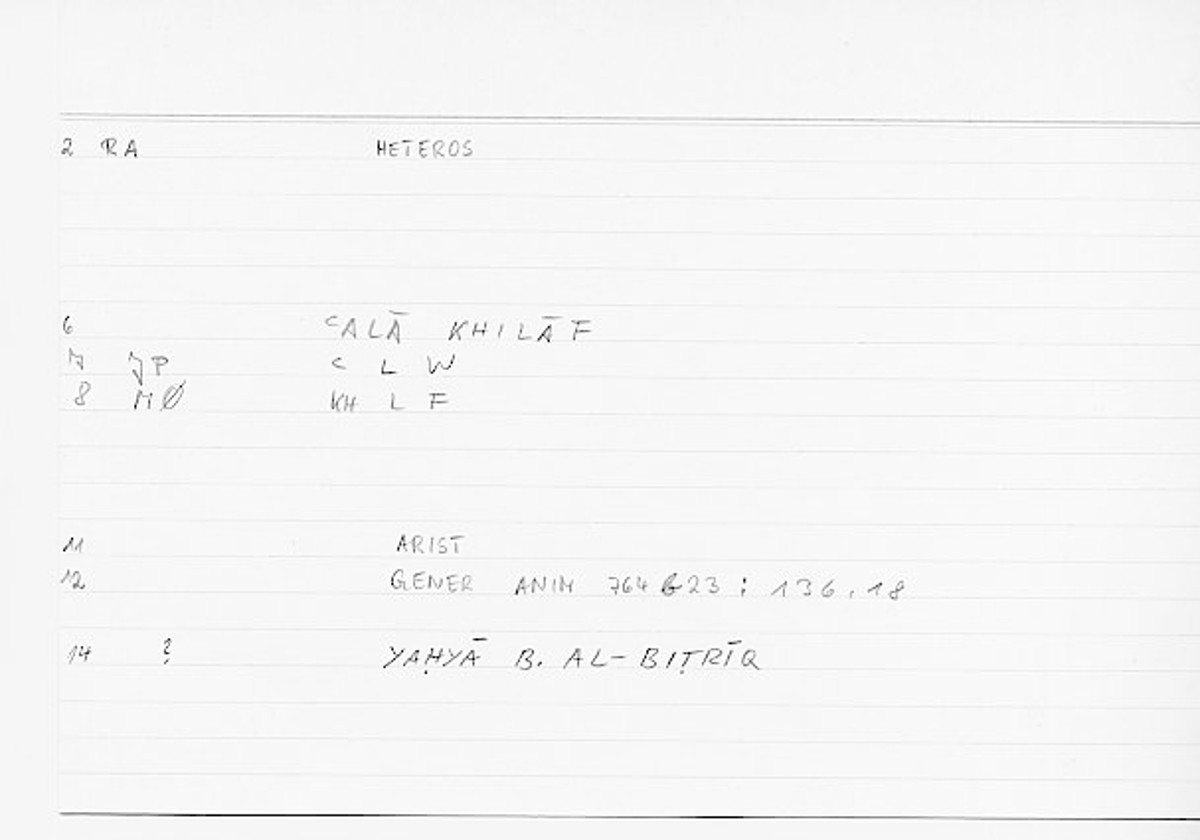 2 RA HETEROS
6 ʿALĀ KHILĀF
7 JP ʿ L W
8 MØ KH L F
11 ARIST
12 GENER ANIM 764b23 : 136,18
14 ? YAḤYĀ B. AL-BIṬRĪQ